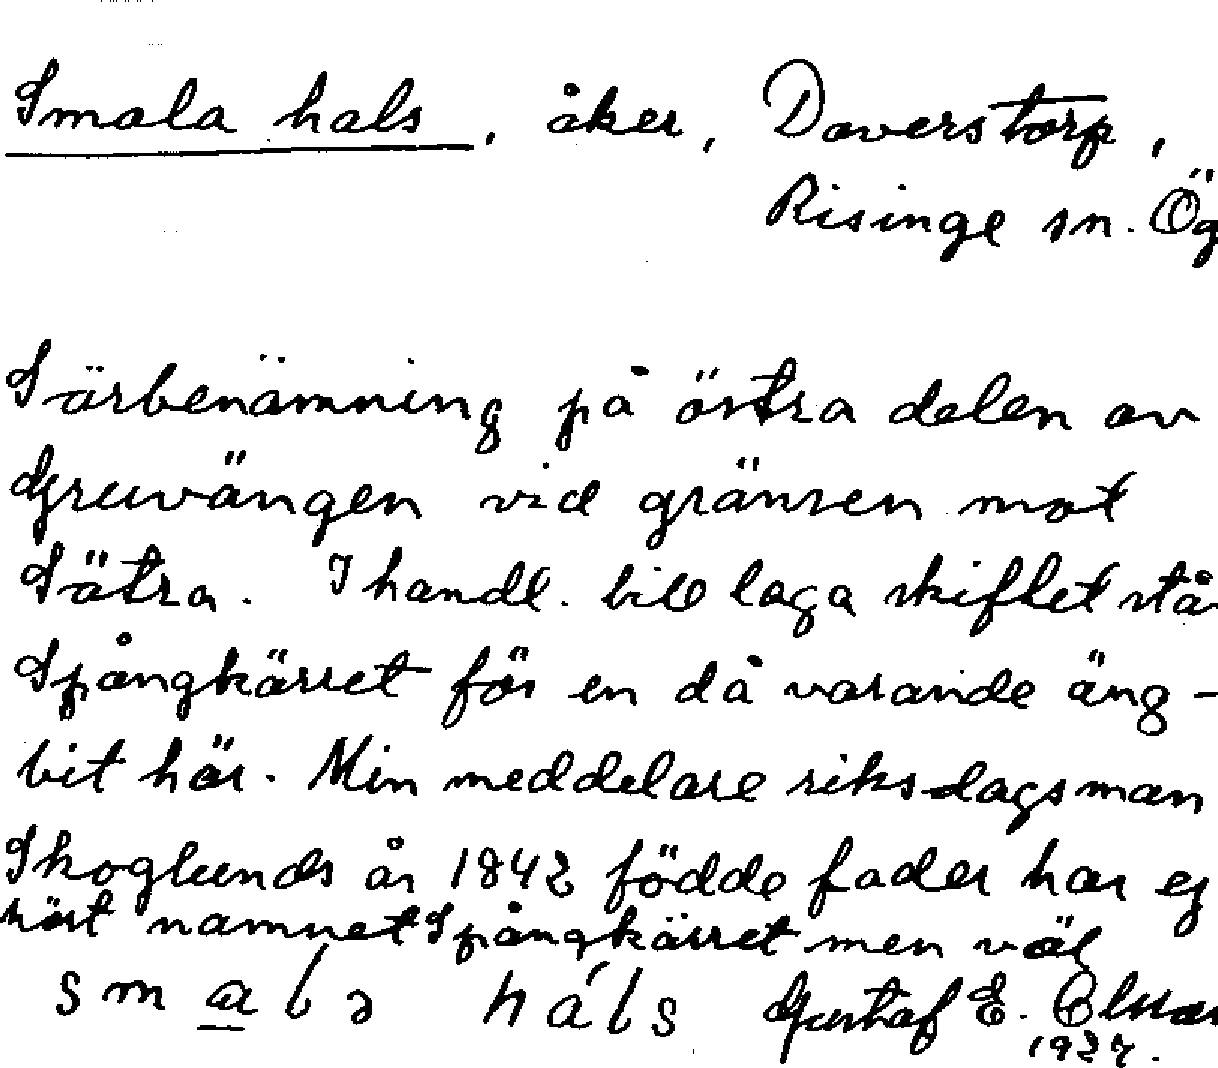 Smala hals, åker, Daverstorp,
Risinge sn. Ög
Särbenämning på östra delen av
Gruvängen vid gränsen mot
Sätra. I handl. till laga skiftet stå
Spångkärret för en då varande äng-
bit här. Min meddelare riksdagsman
Skoglunds år 1842 födde fader har ej
hört namnet Spångkärret men väl
smala háls Gustaf E. Olsson
1937.